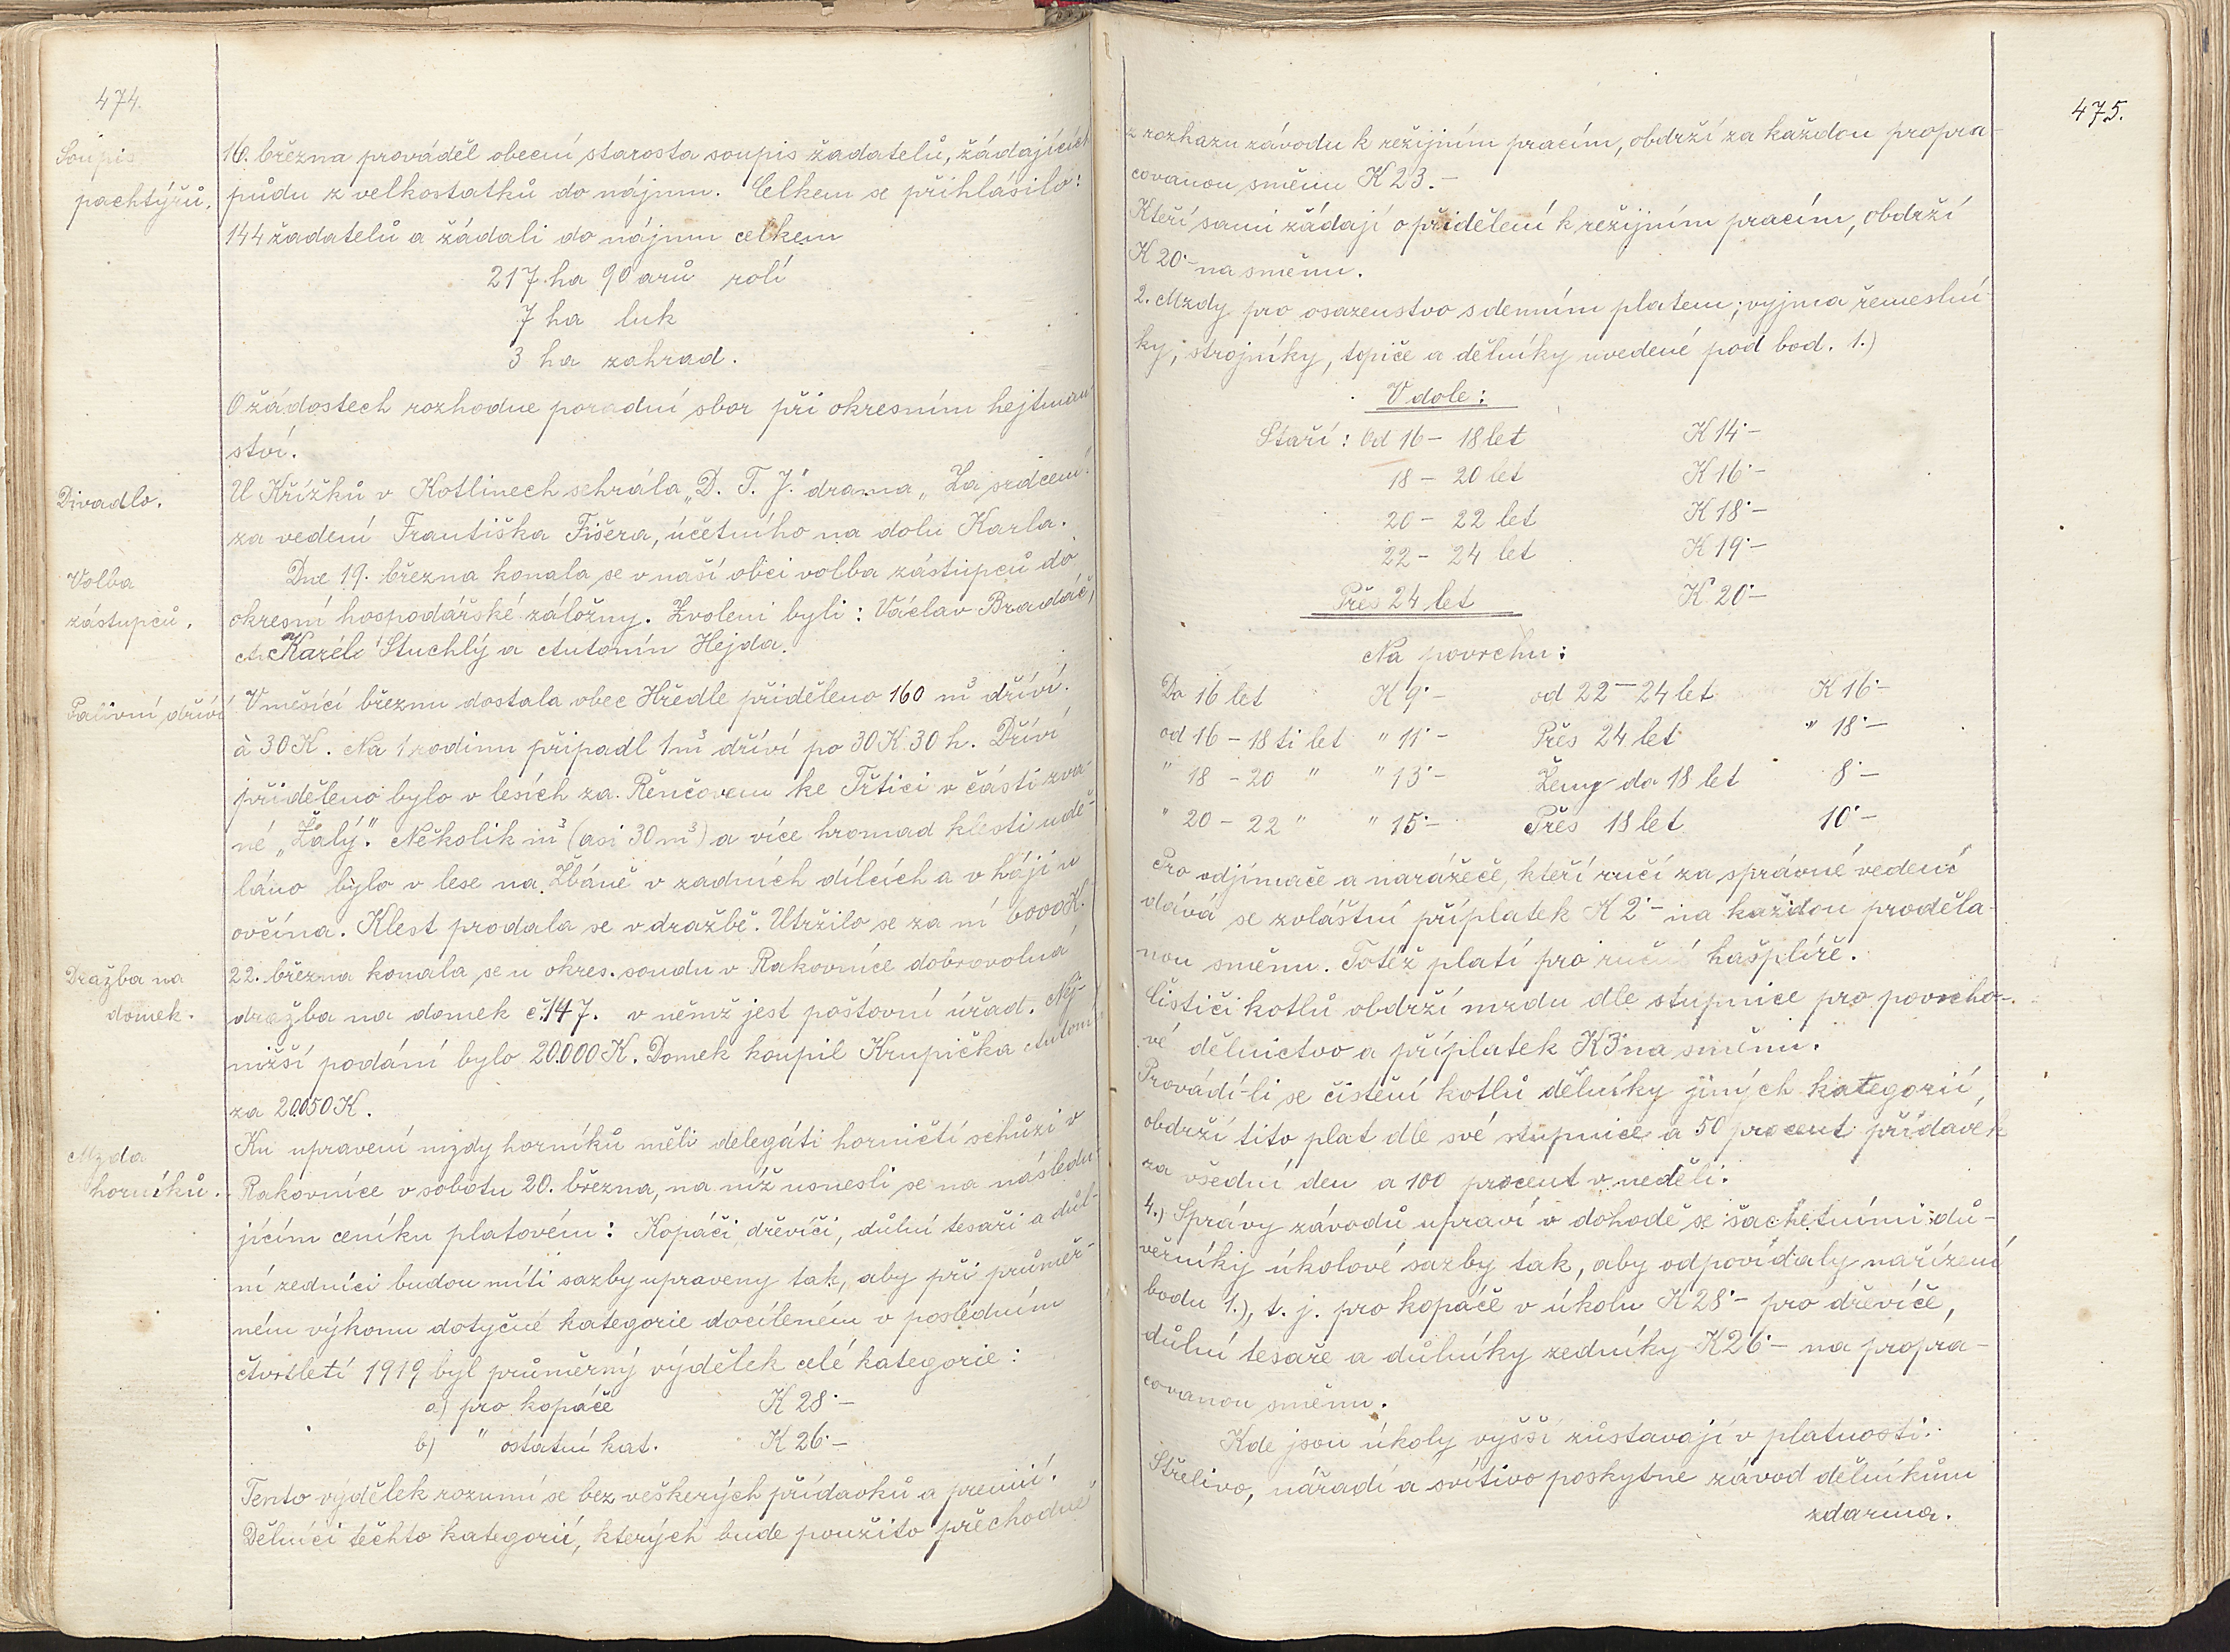 474.
Soupis
pachtýřů.
16. března prováděl obecní starosta soupis žadatelů, žádajících
půdu z velkostatků do nájmu. Celkem se přihlásilo:
144 žadatelů a žádali do nájmu celkem
217 ha 90 arů rolí
7 ha luk
3 ha zahrad.
O žádostech rozhodne poradní sbor při okresním hejtman
ství.
Divadlo.
U Křížků v Kotlinech sehrála „D. T. J." drama „Za srdcem"
za vedení Františka Fišera, účetního na dolu Karla.
Volba
zástupců.
Dne 19. března konala se v naší obci volba zástupců do
okresní hospodářské záložny. Zvoleni byli: Václav Bradáč,
Karel Stuchlý a Antonín Hejda.
Palivní dříví
V měsíci březnu dostala obec Hředle přiděleno 160 m³ dříví.
à 30 K. Na 1 rodinu připadl 1 m³ dříví po 30 K 30 h. Dříví
přiděleno bylo v lesích za Řenčovem ke Třtici v části zva-
né „Žalý". Několik m³ (asi 30 m³) a více hromad klestí udě-
láno bylo v lese na Žbáně v zadních dílcích a v háji u
ovčína. Klest prodala se v dražbě. Utržilo se za ní 6000 K.
Dražba na
domek.
22. března konala se u okres. soudu v Rakovníce dobrovolná
dražba na domek č. 147. v němž jest poštovní úřad. Nej-
nižší podání bylo 20.000 K. Domek koupil Krupička Antonín
za 20.050 K.
Mzda
horníků.
Ku upravení mzdy horníků měli delegáti horničtí schůzi v
Rakovníce v sobotu 20. března, na níž usnesli se na následu-
jícím ceníku platovém: Kopáči, dřevíči, důlní tesaři a důl-
ní zedníci budou míti sazby upraveny tak, aby při průměr-
ném výkonu dotyčné kategorie docíleném v posledním
čtvrtletí 1919 byl průměrný výdělek celé kategorie:
a) pro kopáče K 28·–
b) " ostatní kat. K 26·–
Tento výdělek rozumí se bez veškerých přídavků a premií.
Dělníci těchto kategorií, kterých bude použito přechodně
475.
z rozkazu závodu k režijním pracím, obdrží za každou propra-
covanou směnu K 23.–
Kteří sami žádají o přidělení k režijním pracím, obdrží
K 20·– na směnu.
2. Mzdy pro osazenstvo s denním platem; vyjma řemeslní
ky, strojníky, topiče a dělníky uvedené pod bod. 1.)
V dole:
Staří: Od 16 – 18 let K 14·–
18 – 20 let K 16·–
20 – 22 let K 18·–
22 – 24 let K 19·–
Přes 24 let K 20·–
Na povrchu:
Do 16 let K 9·– od 22 – 24 let K 16·–
od 16 – 18 ti let " 11·– Přes 24 let " 18·–
" 18 – 20 " " 13·– Ženy do 18 let 8·–
" 20 – 22 " " 15·– Přes 18 let 10·–
Pro odjímače a narážeče, kteří ručí za správné vedení
dává se zvláštní příplatek K 2·– na každou proděla-
nou směnu. Totéž platí pro ruční hašplíře.
Čističi kotlů obdrží mzdu dle stupnice pro povrcho-
vé dělnictvo a příplatek K 3 na směnu.
Provádí-li se čistění kotlů dělníky jiných kategorií,
obdrží tito plat dle své stupnice a 50 procent přídavek
za všední den a 100 procent v neděli.
4.) Správy závodů upraví v dohodě se šachetními dů-
věrníky úkolové sazby tak, aby odpovídaly nařízení
bodu 1.), t. j. pro kopáče v úkolu K 28·– pro dřevíče,
důlní tesaře a důlníky zedníky K 26·– na propra-
covanou směnu.
Kde jsou úkoly vyšší zůstavají v platnosti.
Střelivo, nářadí a svítivo poskytne závod dělníkům
zdarma.